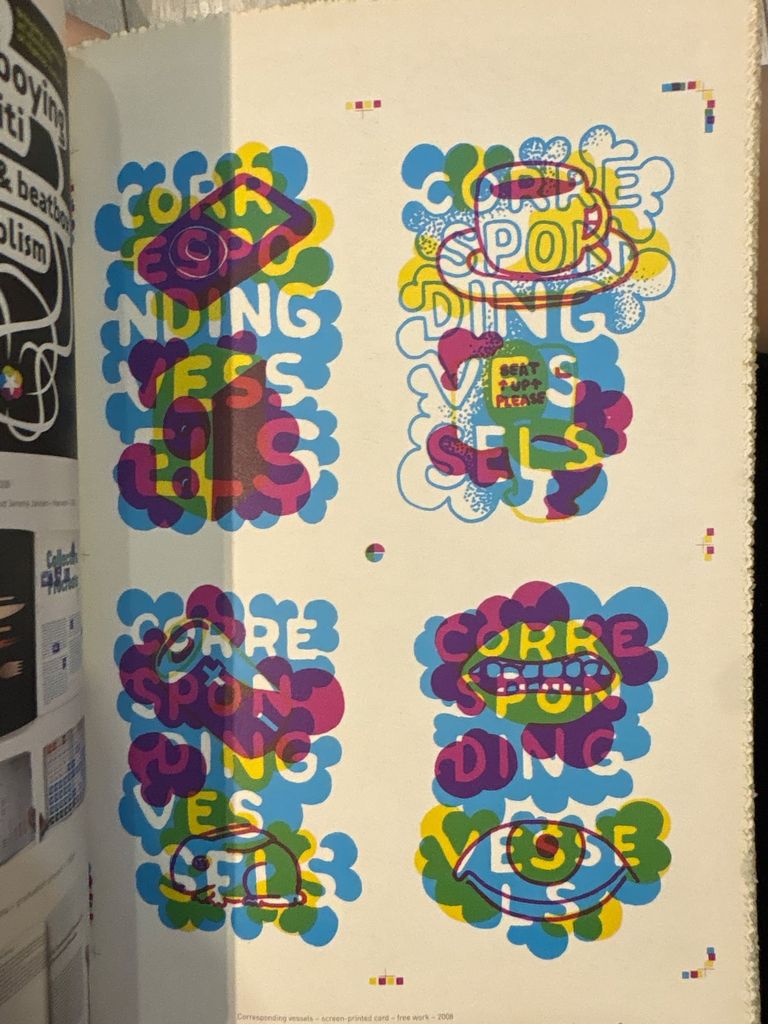 boying
iti
& beatbo
olism
CORR
ESPO
NDING
VESS
ELS
CORRE
SPON
DING
VES
SEAT
↑UP↑
PLEASE
SELS
CORRE
SPON
DING
VES
SELS
CORRE
SPON
DING
VESSE
LS
Corresponding vessels – screen-printed card – free work – 2008